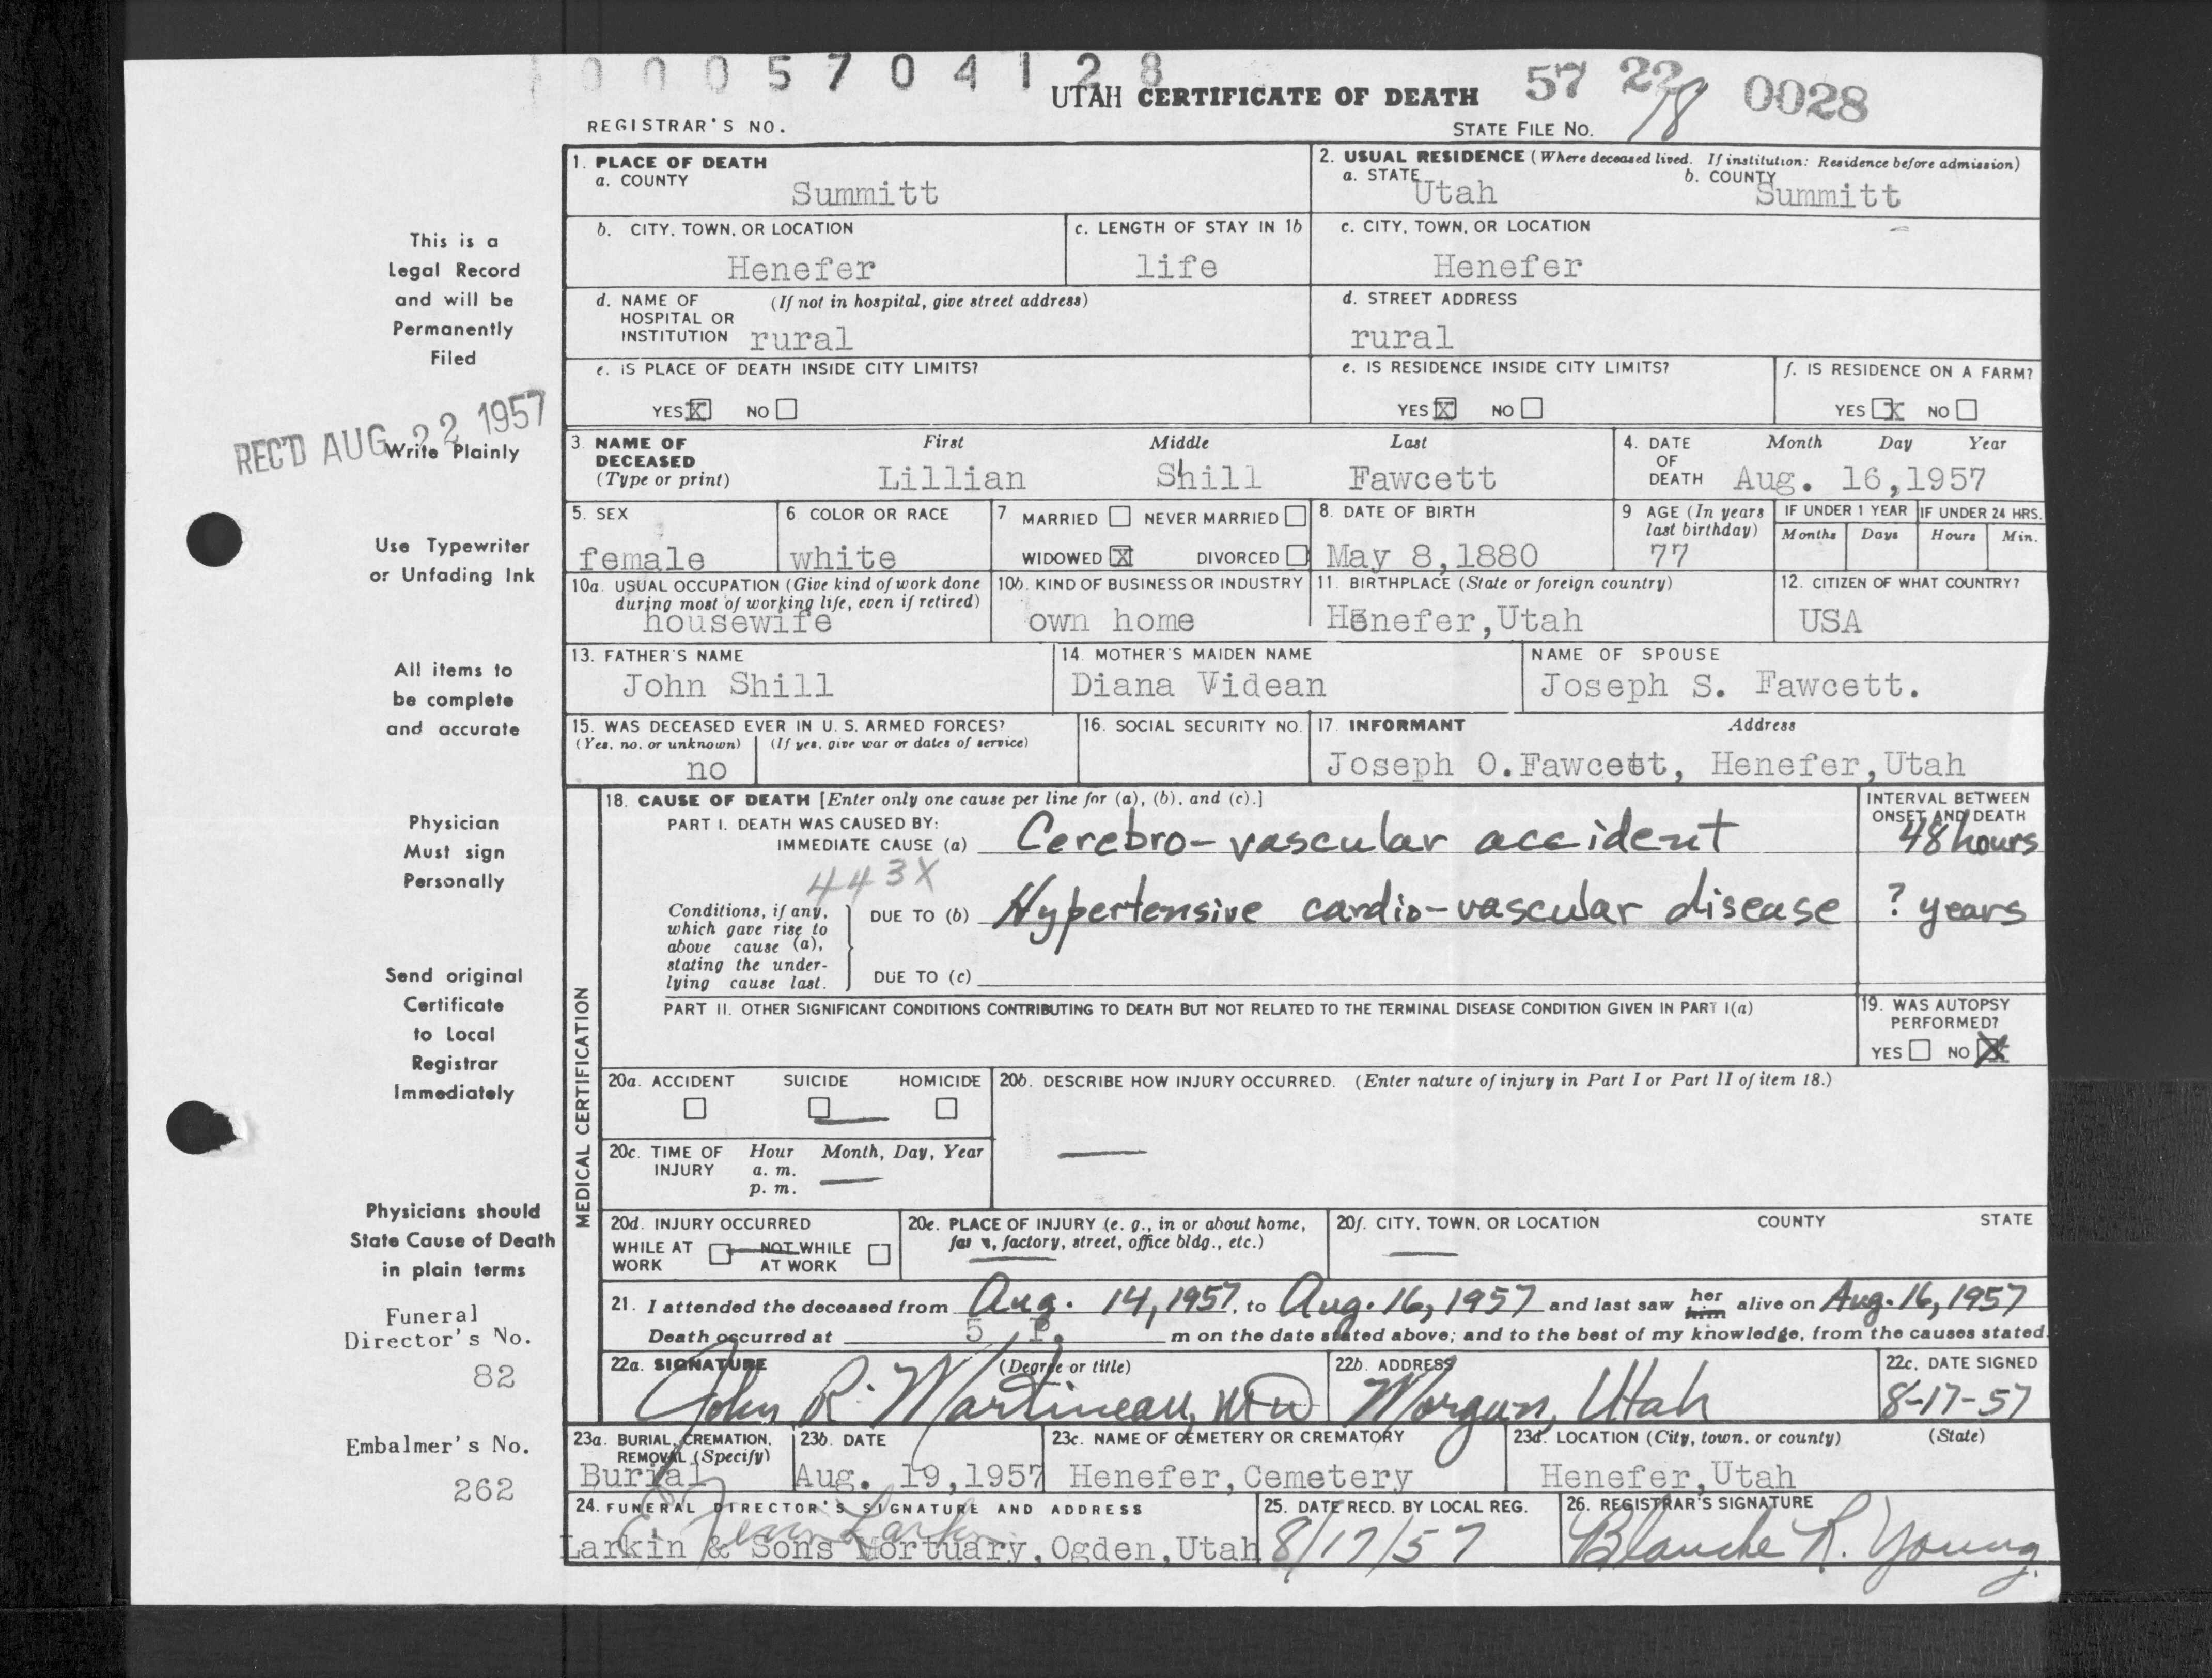 0 0 0 5 7 0 4 1 2 8
UTAH CERTIFICATE OF DEATH 57 22 0028
REGISTRAR'S NO. STATE FILE NO. 18
This is a
Legal Record
and will be
Permanently
Filed
REC'D AUG 22 1957
Write Plainly
Use Typewriter
or Unfading Ink
All items to
be complete
and accurate
Physician
Must sign
Personally
Send original
Certificate
to Local
Registrar
Immediately
Physicians should
State Cause of Death
in plain terms
Funeral
Director's No.
82
Embalmer's No.
262
1. PLACE OF DEATH
a. COUNTY Summitt
2. USUAL RESIDENCE (Where deceased lived. If institution: Residence before admission)
a. STATE Utah b. COUNTY Summitt
b. CITY, TOWN, OR LOCATION Henefer
c. LENGTH OF STAY IN 1b life
c. CITY, TOWN, OR LOCATION Henefer
d. NAME OF (If not in hospital, give street address)
HOSPITAL OR
INSTITUTION rural
d. STREET ADDRESS
rural
e. IS PLACE OF DEATH INSIDE CITY LIMITS?
YES X NO
e. IS RESIDENCE INSIDE CITY LIMITS?
YES X NO
f. IS RESIDENCE ON A FARM?
YES X NO
3. NAME OF DECEASED (Type or print) First Middle Last
Lillian Shill Fawcett
4. DATE OF DEATH Month Day Year
Aug. 16,1957
5. SEX
female
6 COLOR OR RACE
white
7 MARRIED NEVER MARRIED
WIDOWED X DIVORCED
8. DATE OF BIRTH
May 8,1880
9 AGE (In years last birthday)
77
IF UNDER 1 YEAR IF UNDER 24 HRS.
Months Days Hours Min.
10a. USUAL OCCUPATION (Give kind of work done
during most of working life, even if retired)
housewife
10b. KIND OF BUSINESS OR INDUSTRY
own home
11. BIRTHPLACE (State or foreign country)
Henefer,Utah
12. CITIZEN OF WHAT COUNTRY?
USA
13. FATHER'S NAME
John Shill
14. MOTHER'S MAIDEN NAME
Diana Videan
NAME OF SPOUSE
Joseph S. Fawcett.
15. WAS DECEASED EVER IN U. S. ARMED FORCES?
(Yes, no, or unknown) (If yes, give war or dates of service)
no
16. SOCIAL SECURITY NO.
17. INFORMANT Address
Joseph O.Fawcett, Henefer,Utah
MEDICAL CERTIFICATION
18. CAUSE OF DEATH [Enter only one cause per line for (a), (b), and (c).]
INTERVAL BETWEEN
ONSET AND DEATH
PART I. DEATH WAS CAUSED BY:
IMMEDIATE CAUSE (a) Cerebro-vascular accident 48 hours
443X
Conditions, if any,
which gave rise to
above cause (a),
stating the under-
lying cause last.
DUE TO (b) Hypertensive cardio-vascular disease ? years
DUE TO (c)
PART II. OTHER SIGNIFICANT CONDITIONS CONTRIBUTING TO DEATH BUT NOT RELATED TO THE TERMINAL DISEASE CONDITION GIVEN IN PART I(a)
19. WAS AUTOPSY
PERFORMED?
YES NO X
20a. ACCIDENT SUICIDE HOMICIDE
20b. DESCRIBE HOW INJURY OCCURRED. (Enter nature of injury in Part I or Part II of item 18.)
20c. TIME OF INJURY Hour Month, Day, Year
a. m.
p. m.
20d. INJURY OCCURRED
WHILE AT WORK NOT WHILE AT WORK
20e. PLACE OF INJURY (e. g., in or about home,
farm, factory, street, office bldg., etc.)
20f. CITY, TOWN, OR LOCATION COUNTY STATE
21. I attended the deceased from Aug. 14, 1957, to Aug. 16, 1957 and last saw her him alive on Aug. 16, 1957
Death occurred at 5 P. m on the date stated above; and to the best of my knowledge, from the causes stated.
22a. SIGNATURE (Degree or title)
John R. Martineau, MD
22b. ADDRESS
Morgan, Utah
22c. DATE SIGNED
8-17-57
23a. BURIAL, CREMATION,
REMOVAL (Specify)
Burial
23b. DATE
Aug. 19,1957
23c. NAME OF CEMETERY OR CREMATORY
Henefer,Cemetery
23d. LOCATION (City, town, or county) (State)
Henefer,Utah
24. FUNERAL DIRECTOR'S SIGNATURE AND ADDRESS
Larkin & Sons Mortuary,Ogden,Utah
25. DATE RECD. BY LOCAL REG.
8/17/57
26. REGISTRAR'S SIGNATURE
Blanche R. Young